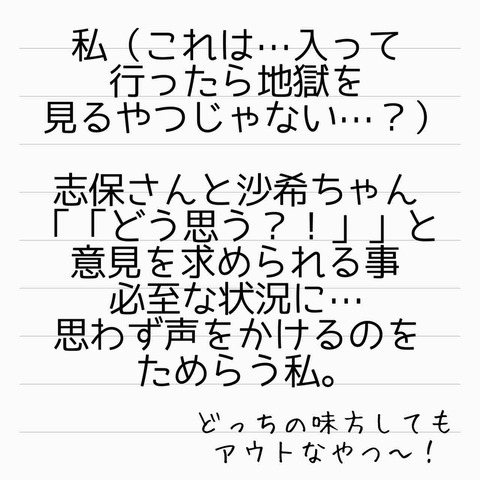 私（これは…入って
行ったら地獄を
見るやつじゃない…？）
志保さんと沙希ちゃん
「「どう思う？！」」と
意見を求められる事
必至な状況に…
思わず声をかけるのを
ためらう私。
どっちの味方しても
アウトなやつ〜！